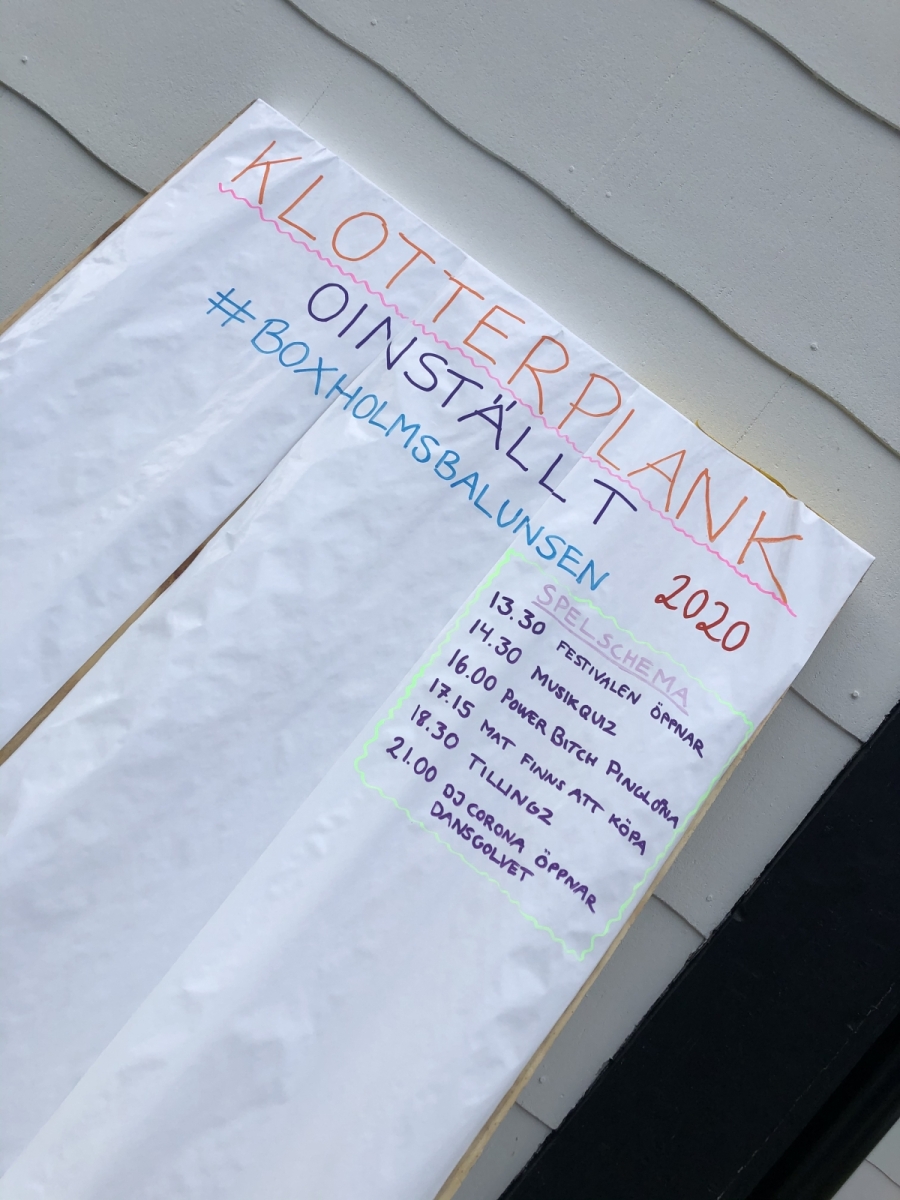 KLOTTERPLANK
OINSTÄLLT
#BOXHOLMSBALUNSEN
2020
SPELSCHEMA
13.30 FESTIVALEN ÖPPNAR
14.30 MUSIKQUIZ
16.00 POWER BITCH PINGLORNA
17.15 MAT FINNS ATT KÖPA
18.30 TILLINGZ
21.00 DJ CORONA ÖPPNAR
DANSGOLVET